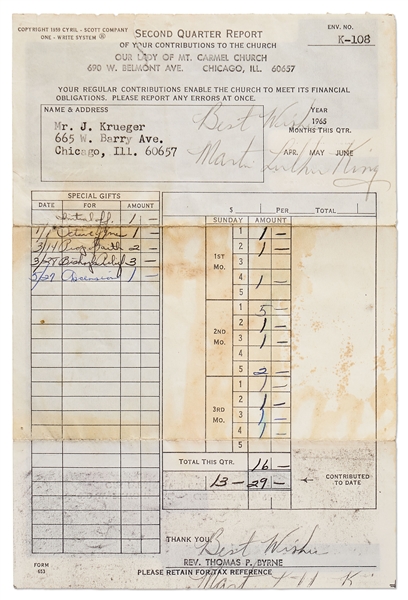 COPYRIGHT 1959 CYRIL - SCOTT COMPANY
ONE - WRITE SYSTEM
SECOND QUARTER REPORT
OF YOUR CONTRIBUTIONS TO THE CHURCH
OUR LADY OF MT. CARMEL CHURCH
690 W. BELMONT AVE. CHICAGO, ILL. 60657
ENV. NO.
K-108
YOUR REGULAR CONTRIBUTIONS ENABLE THE CHURCH TO MEET ITS FINANCIAL
OBLIGATIONS. PLEASE REPORT ANY ERRORS AT ONCE.
NAME & ADDRESS
Mr. J. Krueger
665 W. Barry Ave.
Chicago, Ill. 60657
Best Wishes
Martin Luther King
YEAR
1965
MONTHS THIS QTR.
APR. MAY JUNE
SPECIAL GIFTS
DATE FOR AMOUNT
1 –
1/1 1 –
3/14 2 –
3/28 3 –
5/27 Ascension 1 –
$ PER TOTAL
SUNDAY AMOUNT
1ST MO.
1 1 –
2 1 –
3
4 1 –
5
2ND MO.
1 5
2 1 –
3 1 –
4
5 2 –
3RD MO.
1 1 –
2 1 –
3 1 –
4 1 –
5
TOTAL THIS QTR. 16 –
13 – 29 – CONTRIBUTED TO DATE
THANK YOU,
Best Wishes
REV. THOMAS P. BYRNE
PLEASE RETAIN FOR TAX REFERENCE
FORM
653